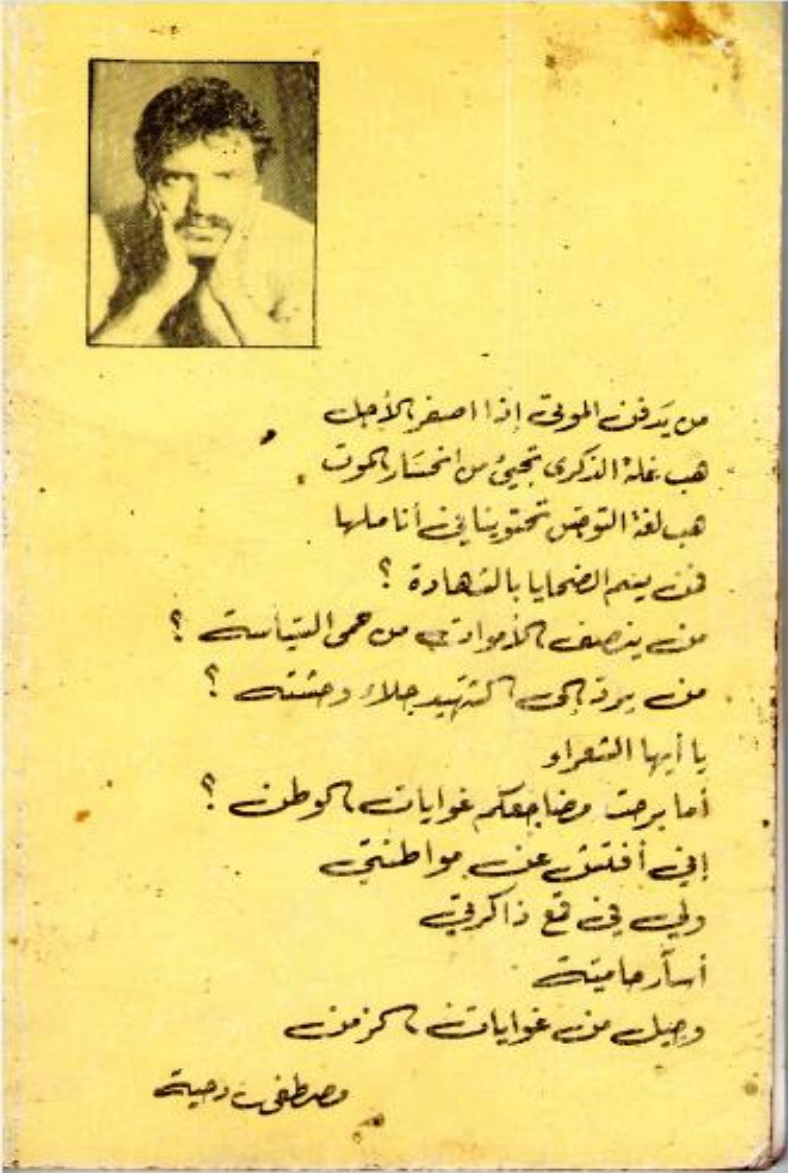 من يَدفن الموتى إذا اصفر الأجل
هب غلة الذكرى تجيئ من انحسَار الموت
هب لغة التوحش تحتوينا في أناملها
فمن يتهم الضحايا بالشهادة ؟
من ينصف الأموات من حمى السّياسة ؟
من يردّ إلى الشهيد جلاء وحشته ؟
يا أيها الشعراء
أما برحت مضاجعكم غوايات الوطن ؟
إني أفتش عن مواطنتي
ولي في قمع ذاكرتي
حامية
وجيل من غوايات الزمن
مصطفى دحية